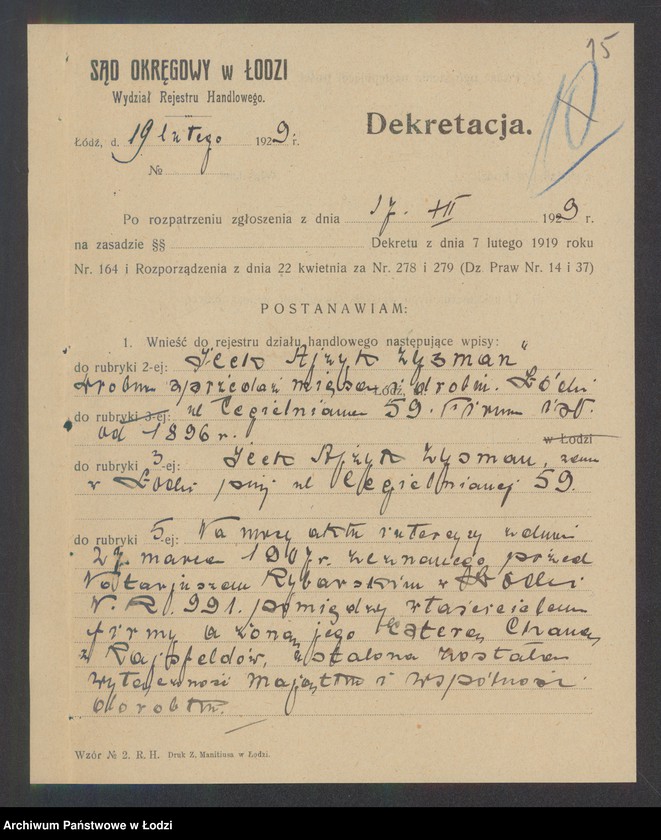 15
10
SĄD OKRĘGOWY w ŁODZI
Wydział Rejestru Handlowego.
Łódź, d. 19 lutego 1929 r.
№
Dekretacja.
Po rozpatrzeniu zgłoszenia z dnia 17. XII 1929 r.
na zasadzie §§ Dekretu z dnia 7 lutego 1919 roku
Nr. 164 i Rozporządzenia z dnia 22 kwietnia za Nr. 278 i 279 (Dz. Praw Nr. 14 i 37)
POSTANAWIAM:
1. Wnieść do rejestru działu handlowego następujące wpisy:
do rubryki 2-ej: "Icek Ajzyk Zysman"
drobna sprzedaż mięsa i drobiu. Łódź,
do rubryki 3-ej: ul Cegielniana 59. Firma istn.
od 1896 r.
w Łodzi
do rubryki 3-ej: Icek Ajzyk Zysman, zam
w Łodzi przy ul Cegielnianej 59.
do rubryki 5-ej: Na mocy aktu intercyzy z dnia
27 marca 1907 r. zeznanego przed
Notarjuszem Rybarskim w Łodzi
N. R. 991. pomiędzy właścicielem
firmy a żoną jego Esterą Chaną
z Rajsfeldów, ustalona została
wyłączność majątku i wspólność
dorobku.
Wzór № 2. R. H. Druk Z. Manitiusa w Łodzi.
Archiwum Państwowe w Łodzi